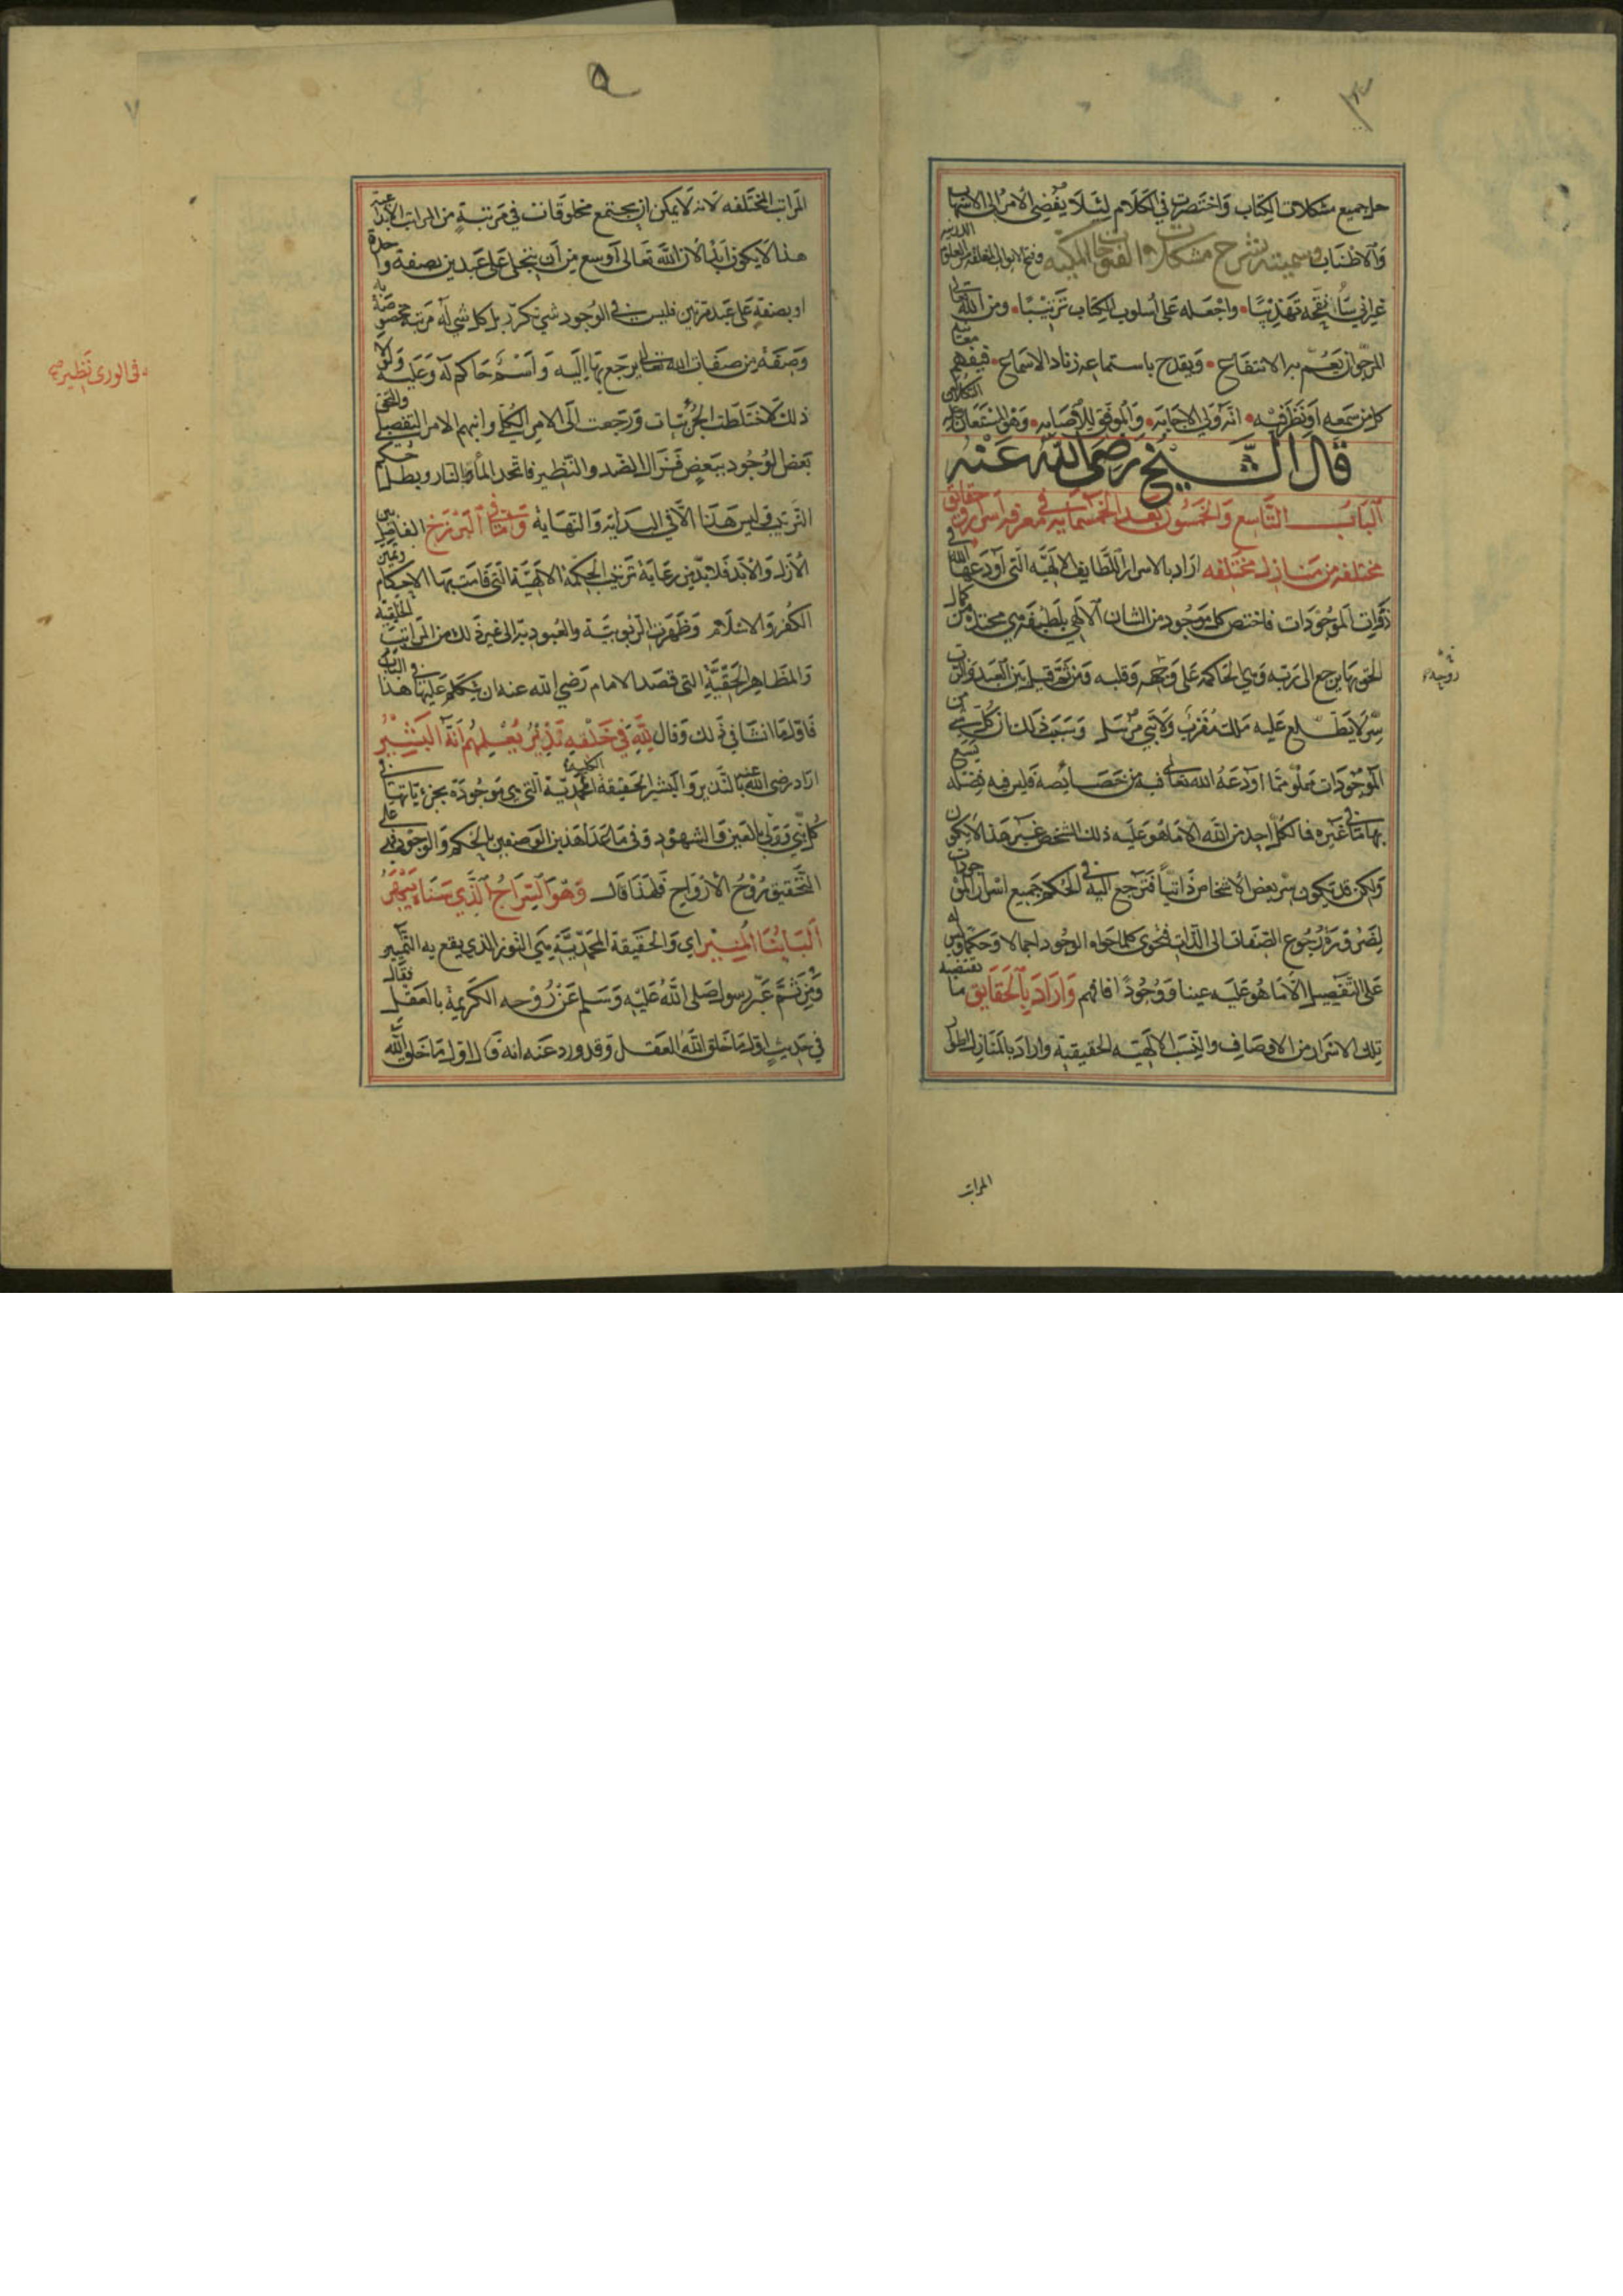 حل جميع مشكلات الكتاب واختصرت في الكلام لئلا يفضي الامر الى الاسهاب
والاطناب وسميته بشرح مشكلات الفتوحات المكيه وفتح الابواب المغلقات من العلوم اللدنيه
غير اني سأنقحه تهذيبًا واجعله على أسلوب الكتاب ترتيبًا ومن الله تعالى
المرجو ان يعم به الانتفاع ويقدح باستماعه زناد الاسماع فيفهم معانيه
كل من سمعه او نظر فيه انه ولي الاجابه والموفق للاصابه وهو المستعان وعليه التكلان
قال الشيخ رضي الله عنه
الباب التاسع والخمسون بعد الخمسمايه في معرفه اسرار وحقايق
مختلفه من منازل مختلفه اراد بالاسرار اللطايف الالهيه التي اودعها الله في
ذرات الموجودات فاختص كل موجود من الشان الالهي بلطيفة هي محتده من كمال
الحق بها يرجع الى ربه وهي الحاكمه على وجهه وقلبه ومن ثم قيل بين العبد والرب
سر لا يطلع عليه ملك مقرب ولا نبي مرسل وسبب ذلك ان كل شي من
الموجودات مملو مما اودعه الله تعالى فيه من خصائصه فليس فيه فضله يسع
بها ما في غيره فما لكل احد من الله الا ما هو عليه ذلك الشخص غير هذا لا يكون
ولكن قد يكون سر بعض الاشخاص ذاتيًا فترجع اليه في الحكم جميع اسرار الموجودات
لضرورة رجوع الصفات الى الذات فحوى كلما حواه الوجود اجمالا وحكما وليس له
على التفصيل الا ما هو عليه عينا ووجودًا فافهم واراد بالحقايق ما تقتضيه
تلك الاسرار من الاوصاف والنسب الالهيه الحقيقيه واراد بالمنازل
المراتب
المراتب المختلفه لانه لا يمكن ان يجتمع مخلوقات في مرتبة من المراتب
هذا لا يكون ابدًا لان الله تعالى اوسع من أن يتجلى على عبدين بصفة واحدة
او بصفة على عبد مرتين فليس في الوجود شي تكرر بل كل شي له مرتبة مخصوصة
وصفة من صفات الله تعالى يرجع بها اليه واسم حاكم له وعليه ولولا
ذلك لاختلطت الجزئيات ورجعت الى الامر الكلي وانبهم الامر التفصيلي والتحق
بعض الوجود ببعض فنزل الضد والنظير فاتحد الماء والنار وبطل حكم
الترتيب وليس هذا الا في البداية والنهاية واما في البرزخ الفاصل بين
الازل والابد فلا بد من رعاية ترتيب الحكمة الالهية التي قامت بها الاحكام وتميز
الكفر والاسلام وظهرت الربوبية والعبوديه الى غير ذلك من المراتب الخلقيه
والمظاهر الحقية التي قصد الامام رضي الله عنه ان يتكلم عليها في هذا الباب
فاول ما انشا في ذلك وقال لله في خلقه نذير يعلمهم انه البشير
اراد رضي الله عنه بالنذير والبشير الحقيقة المحمدية الكلية التي هي موجودة بجزئياتها في
كل نبي وولي بالعين والشهود وفي ما عدا هذين الوصفين بالحكم والوجود فهي على
التحقيق روح الارواح فلهذا قال وهو السراج الذي سناه يبهر
البابنا المنير اي والحقيقة المحمدية هي النور الذي يقع به التمييز
ومن ثم عبر رسول صلى الله عليه وسلم عن روحه الكريمة بالعقل فقال
في حديث اول ما خلق الله العقل وقد ورد عنه انه قال اول ما خلق الله
في الورى نظير